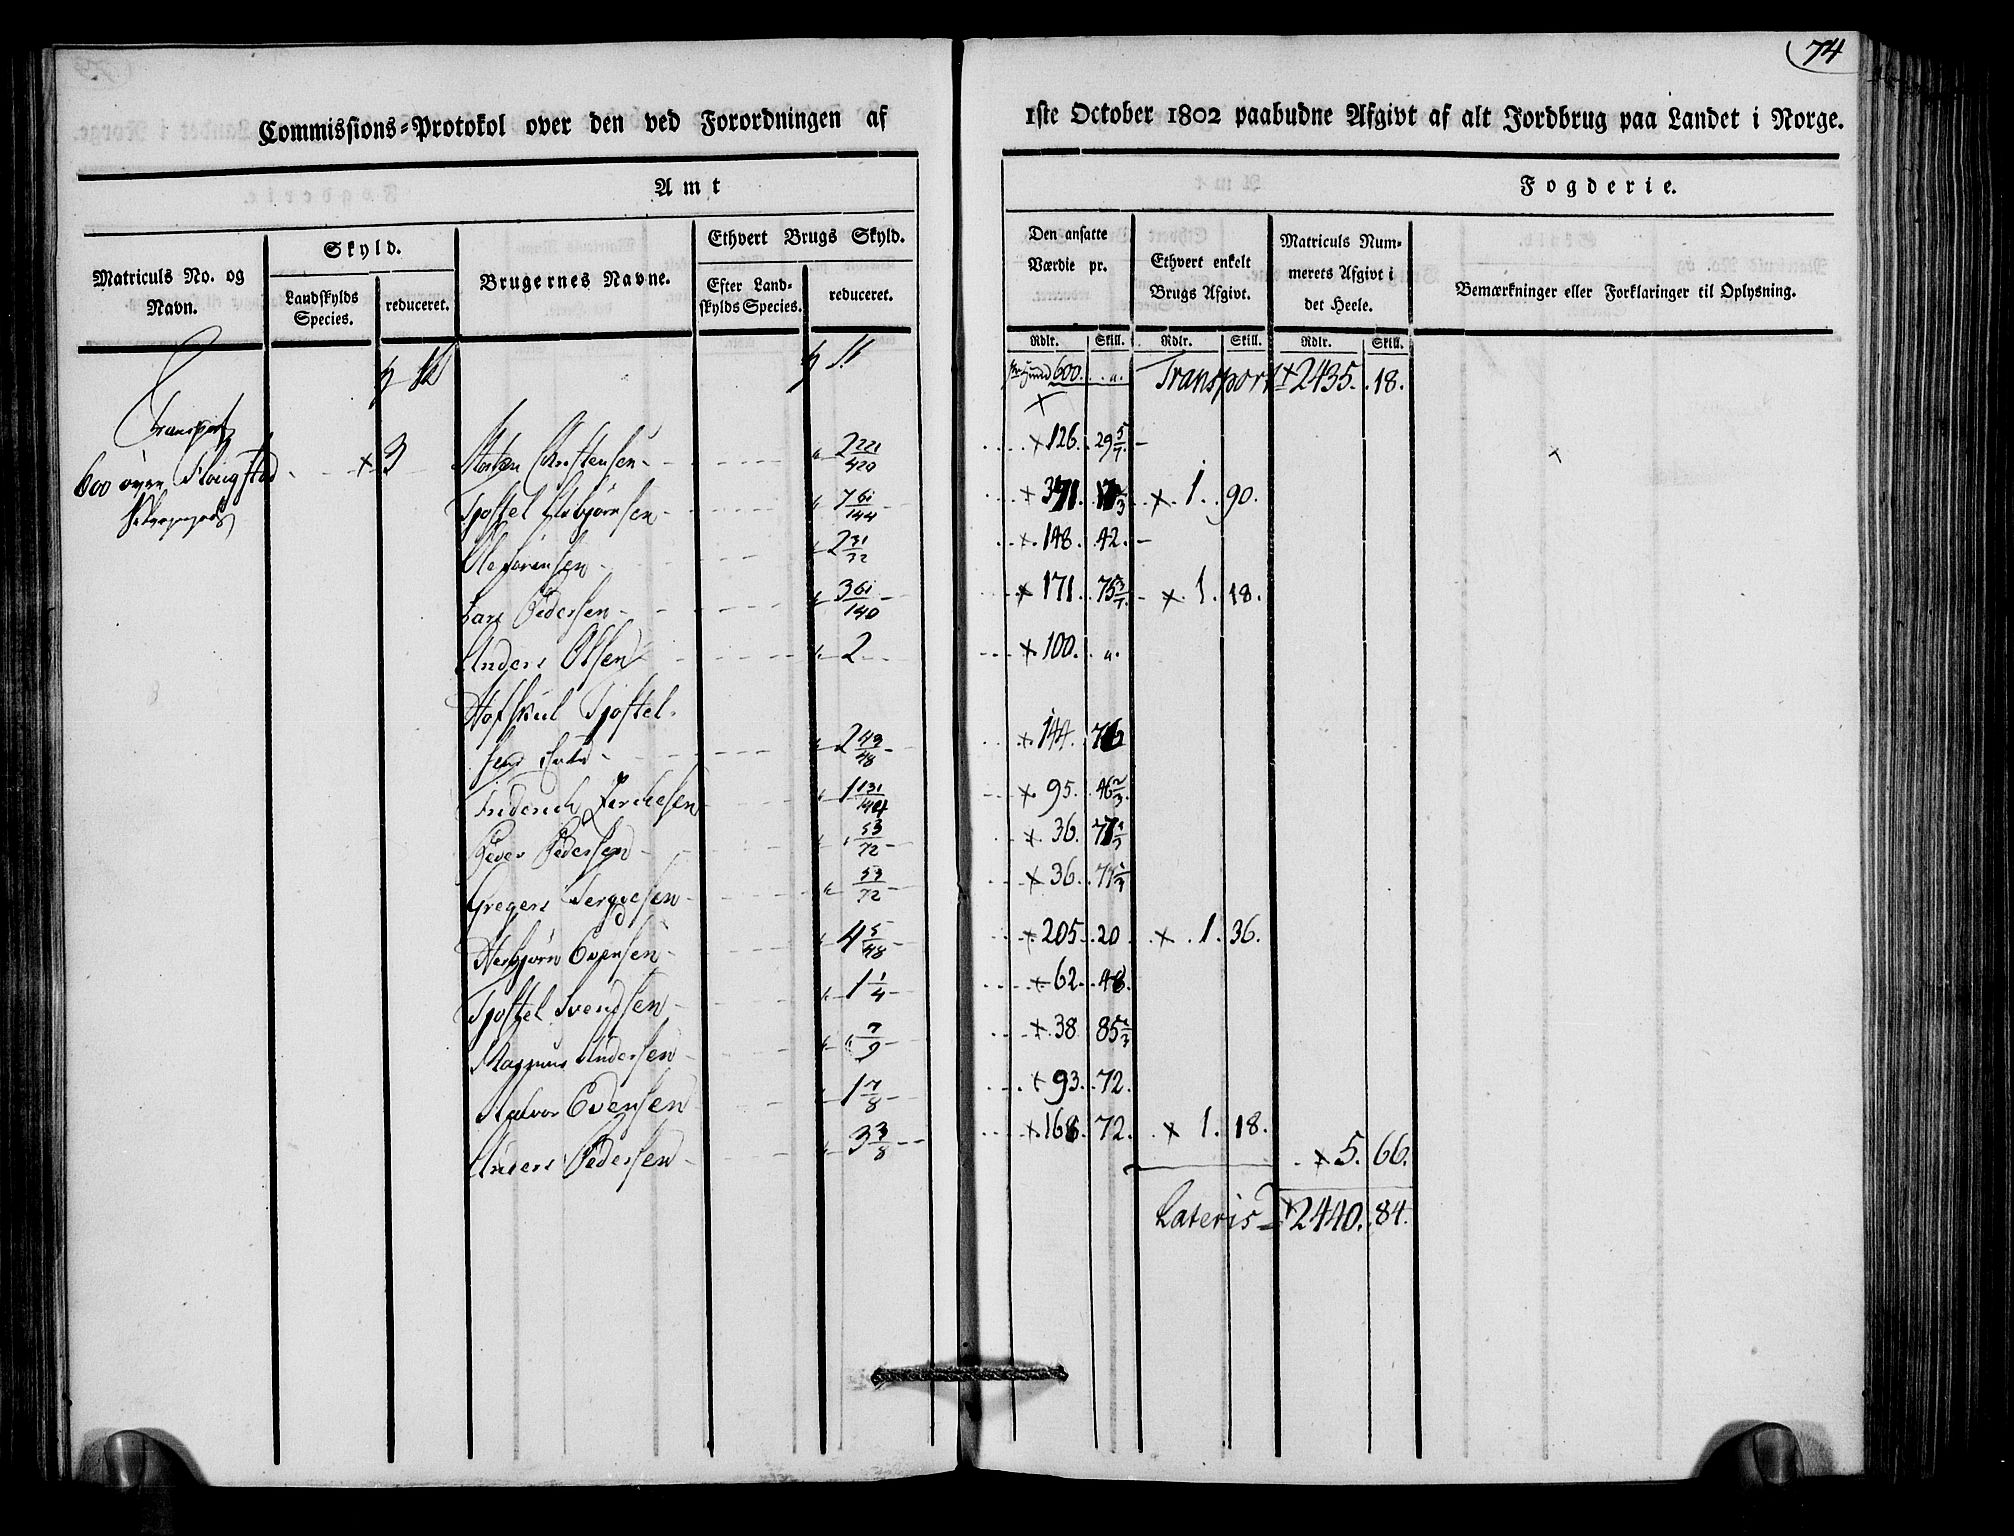 74
Commissions-Protokol over den ved Forordningen af 1ste October 1802 paabudne Afgivt af alt Jordbrug paa Landet i Norge.
Amt
Fogderie.
Matriculs No. og Navn.
Skyld.
Landskylds Species.
reduceret.
Brugernes Navne.
Ethvert Brugs Skyld.
Efter Landskylds Species.
reduceret.
Den ansatte Værdie pr.
Ethvert enkelt Brugs Afgivt.
Matriculs Nummerets Afgivt i det Heele.
Bemærkninger eller Forklaringer til Oplysning.
Rdlr. Skill. Rdlr. Skill. Rdlr. Skill.
600. Transport 2435. 18.
Transport
600 øvre 3 Christensen 2 221/420 126. 29 5/7
Tjostel Asbjørnsen 7 61/144 371. 1. 90.
Ole Sørensen 2 31/72 148. 42.
Lars Pedersen 3 61/140 171. 75 3/7 1. 18.
Anders Olsen 2 100. "
Tjostel-
sens 2 43/48 144. 76
Friderich 1 131/144 95. 46 2/3
Peder Pedersen 53/72 36. 77 1/3
Gregers 53/72 36. 77 1/3
Evensen 4 5/48 205. 20 1. 36.
Tjostel Svendsen 1 1/4 62. 48.
Magnus Andersen 7/9 38 85 1/3
Halvor Evensen 1 7/8 93. 72.
Anders Pedersen 3 3/8 168. 72. 1. 18.
5. 66.
Lateris 2440. 84.